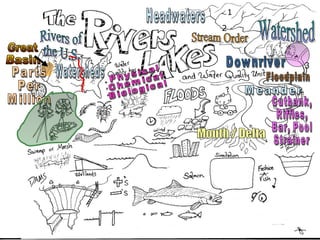 The
Headwaters
1
2
Rivers of
the U.S.
RiveRs
Lakes
Stream Order
Watershed
Great
Basin
Parts
Per
Million
Watersheds
Water
Quality
Physical
Chemical
Biological
and Water Quality Unit
Downriver
Floodplain
Meander
FLOODS
Cutbank,
Riffles,
Bar, Pool
Strainer
Mouth / Delta
Swamp or Marsh
Wetlands
DAMS
+'s
-'s
Salmon
Simulation
Fashion
a
Fish